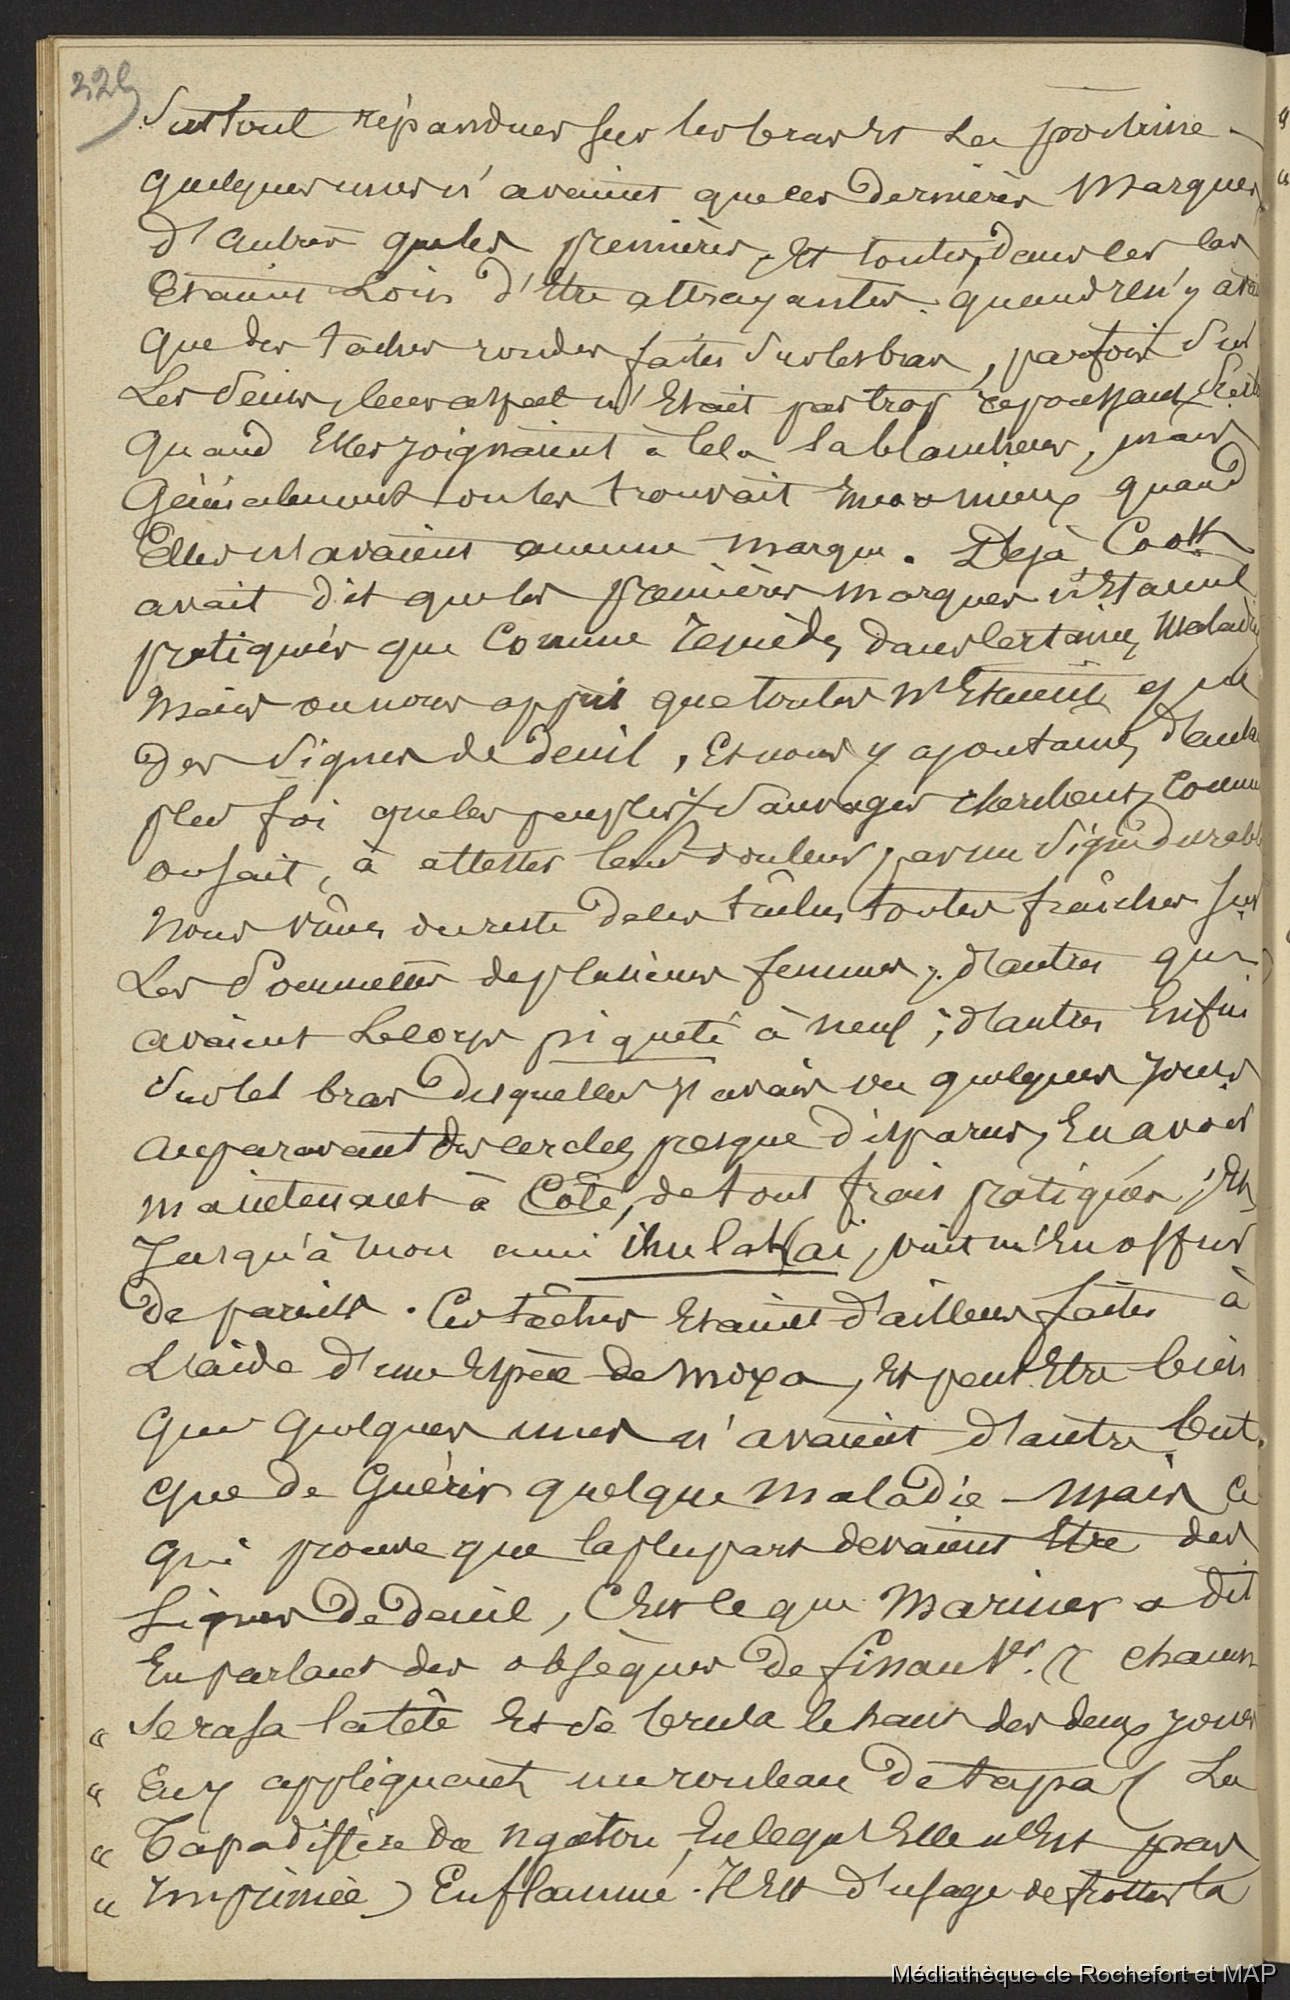 229
Surtout répandues sur les bras et la poitrine -
quelques unes n'avaient que ces dernières marques
d'autres que les premières, et toutes, dans les cas
Etaient Loin d'Etre attrayantes. quand il n'y avait
que des taches rondes faites sur les bras, parfois sur
Les seins, leur aspect n'Etait pas trop repoussant, surtout
quand Elles joignaient à cela la blancheur, mais
Généralement on les trouvait encore mieux quand
Elles n'avaient aucune marque. Déjà Cook
avait dit que les premières marques n'Etaient
pratiquées que Comme remède, dans certaines Maladies
Mais on nous apprit que toutes n'Etaient que
des signes de deuil, Et nous y ajoutames d'autant
plus foi que les peuples sauvages cherchent, comme
on sait, à attester leur douleur par un signe durable
Nous vîmes du reste de ces tâches toutes fraîches sur
Les Pommettes de plusieurs femmes ; d'autres qui
avaient Le corps piqueté à neuf ; d'autres Enfin
Sur les bras desquelles j'avais vu quelques jours
auparavant des cercles presque disparus, En avoir
maintenant à Côté, de tout frais pratiqués, Et
Jusqu'à mon ami ihulakai, vint m'En offrir
de pareils. Ces tâches Etaient d'ailleurs faites à
L'aide d'une Espèce de moxa, Et peut Etre bien
que quelques unes n'avaient d'autre but
que de Guérir quelque maladie - Mais ce
qui prouve que la plupart devaient Etre des
signes de deuil, C'Est ce que Mariner a dit
En parlant des obsèques de finau 1er. (( chacun
" se rasa la tête Et se brula le haut des deux joues
" En y appliquant un rouleau de tapa ( La
" Tapa diffère du ngatou, En ce qu'Elle n'Est pas
" Imprimée ) Enflammé. Il Est d'usage de frotter la
Médiathèque de Rochefort et MAP